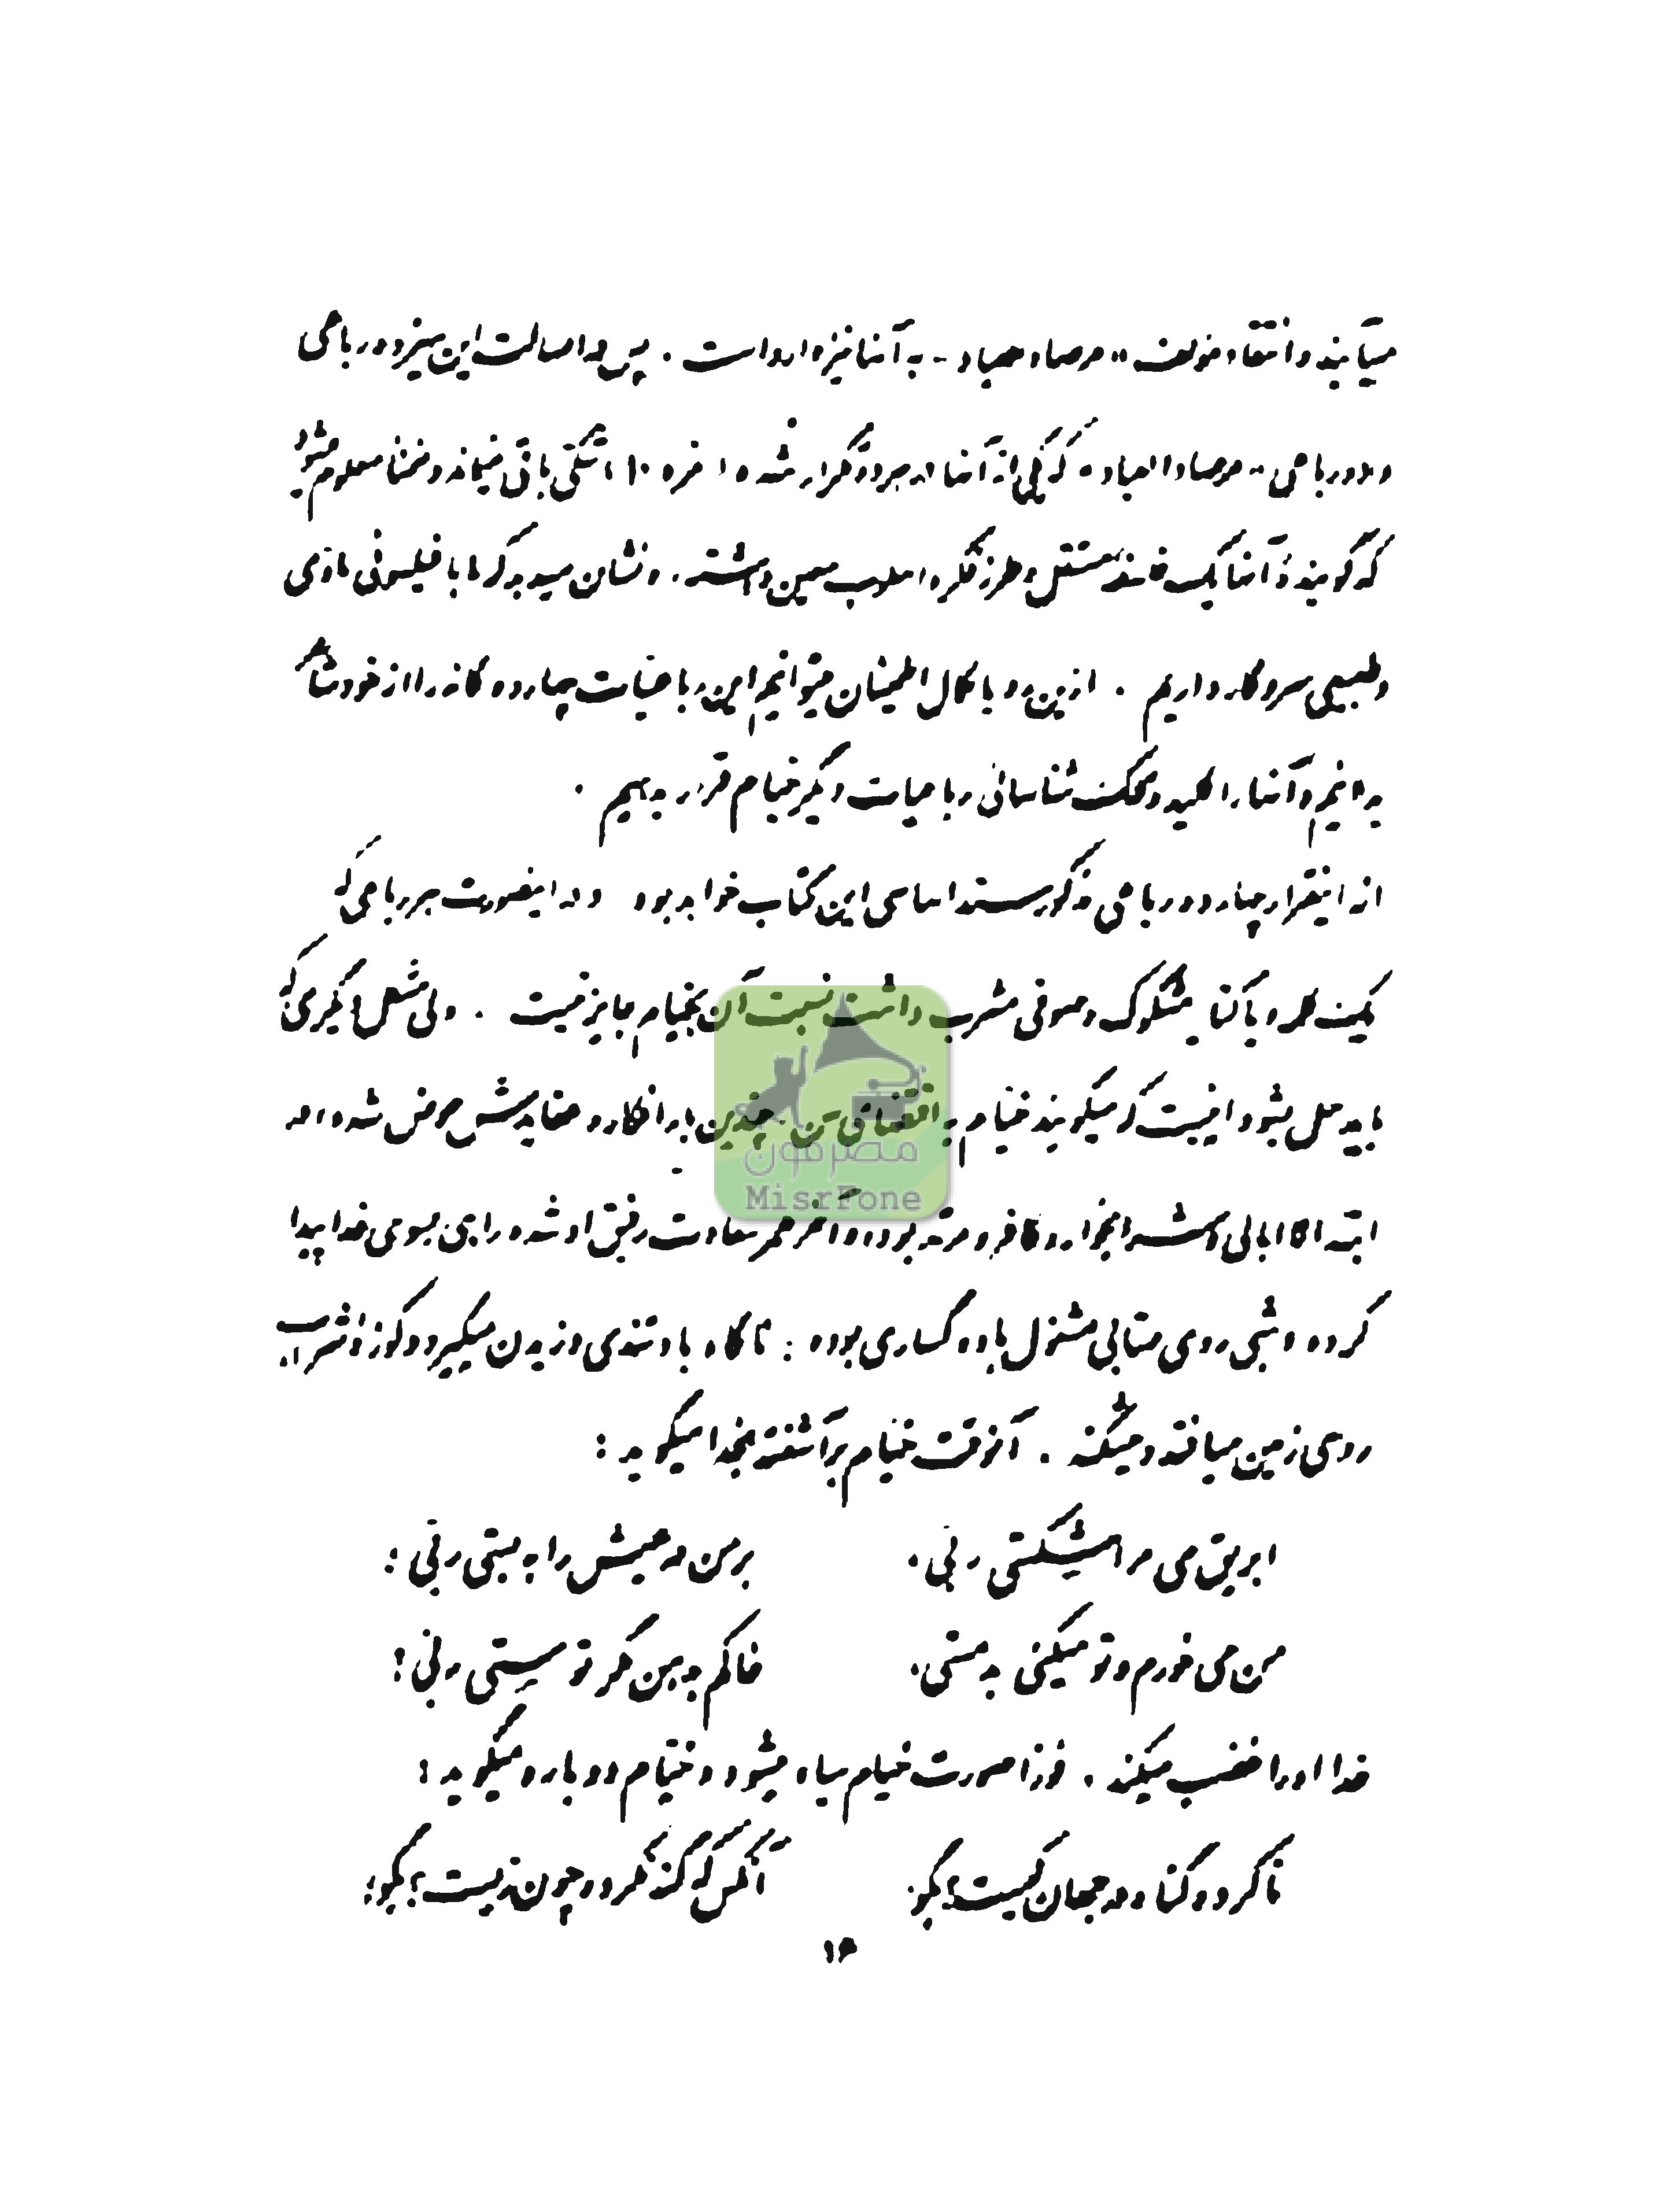 میآیند و انتقاد مؤلف «مرصاد عباد» به آنها نیز وارد است. پس در اصالت این سیزده رباعی
و دو رباعی «مرصاد العباد» که یکی از آنها در هر دو تکرار شده (نمره ۱۰) شکی باقی نمیماند و ضمنا معلوم میشود
که گوینده آنها یک فلسفه مستقل و طرز فکر و اسلوب معین داشته. و نشان میدهد که ما با فیلسوفی مادی
و طبیعی سر و کار داریم. ازین رو با کمال اطمینان میتوانیم این رباعیات چهارده گانه را از خود شاعر
بدانیم و آنها را کلید و محک شناسائی رباعیات دیگر خیام قرار بدهیم.
از اینقرار چهارده رباعی مذکور سند اساسی این کتاب خواهد بود و در اینصورت هر رباعی که
یک کلمه و یا کنایه مشکوک و صوفی مشرب داشت نسبت آن بخیام جایز نیست. ولی مشکل دیگری که
باید حل بشود اینست که میگویند خیام به اقتضای سن، چندین بار افکار و عقایدش عوض شده، در
ابتدا لاابالی و شرابخوار و کافر و مرتد بوده و آخر عمر سعادت رفیق او شده راهی بسوی خدا پیدا
کرده و شبی روی مهتابی مشغول باده گساری بوده؛ ناگاه باد تندی وزیدن میگیرد و کوزه شراب
روی زمین میافتد و میشکند. آنوقت خیام برآشفته بخدا میگوید:
ابریق می مرا شکستی ربی، بر من در عیش را به بستی ربی؛
من می خورم و تو میکنی بد مستی، خاکم بدهن مگر تو مستی ربی؟
خدا او را غضب میکند، فورا صورت خیام سیاه میشود و خیام دوباره میگوید:
ناکرده گناه در جهان کیست؟ بگو، آنکس که گنه نکرده چون زیست؟ بگو؛
۱۶
مصرفون
MisrFone